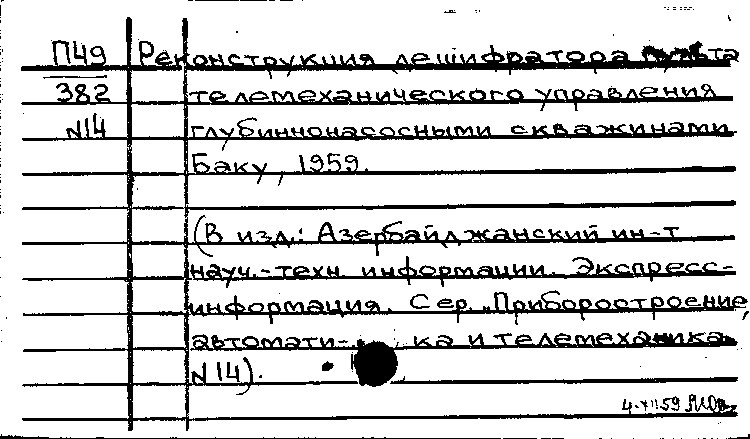 П49 Реконструкция дешифратора пульта
382 телемеханического управления
N14 глубиннонасосными скважинами
Баку, 1959.
(В изд.: Азербайджанский ин-т
науч.-техн. информации. Экспресс-
информация. Сер. „Приборостроение,
автомати- ка и телемеханика
N14).
4-XII59